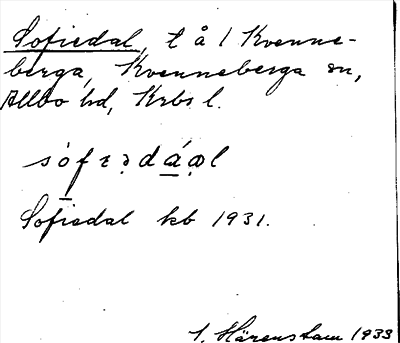 Sofiedal, t å 1 Kvenne-
berga, Kvenneberga sn,
Allbo hd, Krbs l.
Sofiedal kb 1931.
Härenstam 1933